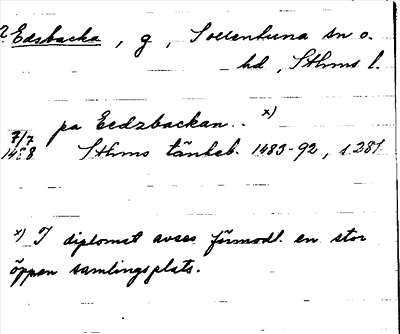 ? Edsbacka, g, Sollentuna sn o.
hd, Sthms l.
på Eedzbackan.. x)
7/7
1488 Sthms tänkeb. 1483-92, s. 281.
x) I diplomet avses förmodl. en stor
öppen samlingsplats.